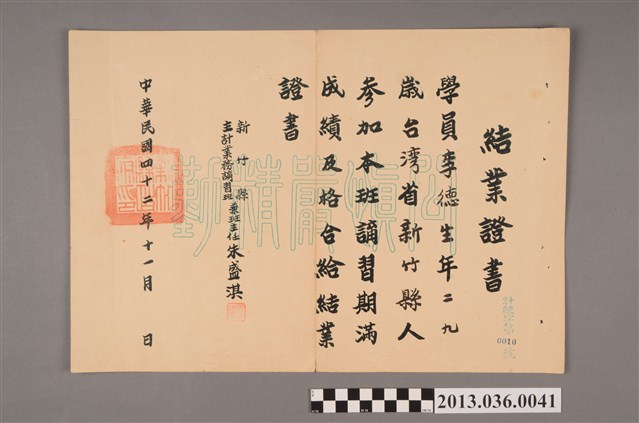 結業證書
學員李德生年二九
歲台湾省新竹縣人
參加本班講習期滿
成績及格合給結業
證書
新竹縣
主計業務講習班
兼班主任朱盛淇
中華民國四十二年十一月 日
公慎嚴精勤
第0010號
2013.036.0041